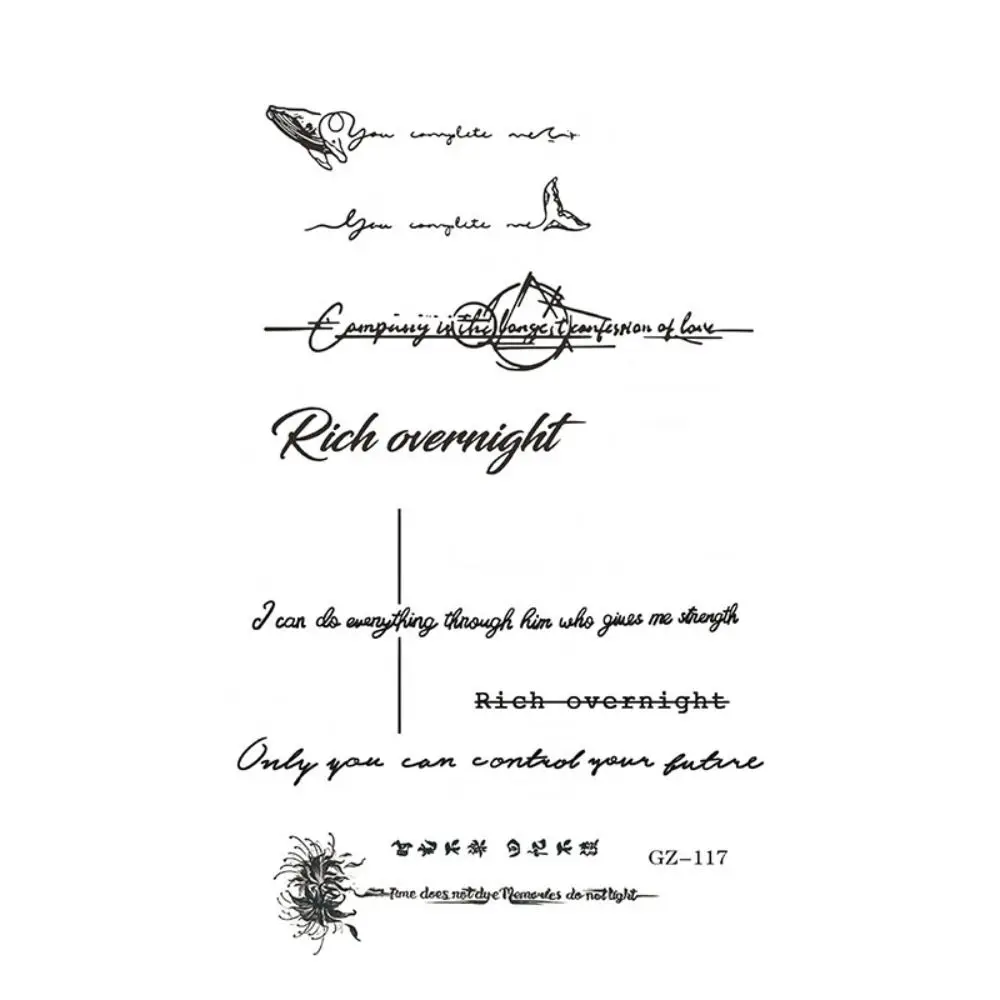 You complete me
You complete me
Company is the longest confession of love
Rich overnight
I can do everything through him who gives me strength
Rich overnight
Only you can control your future
时光不染 回忆不淡
GZ-117
Time does not dye Memories do not light